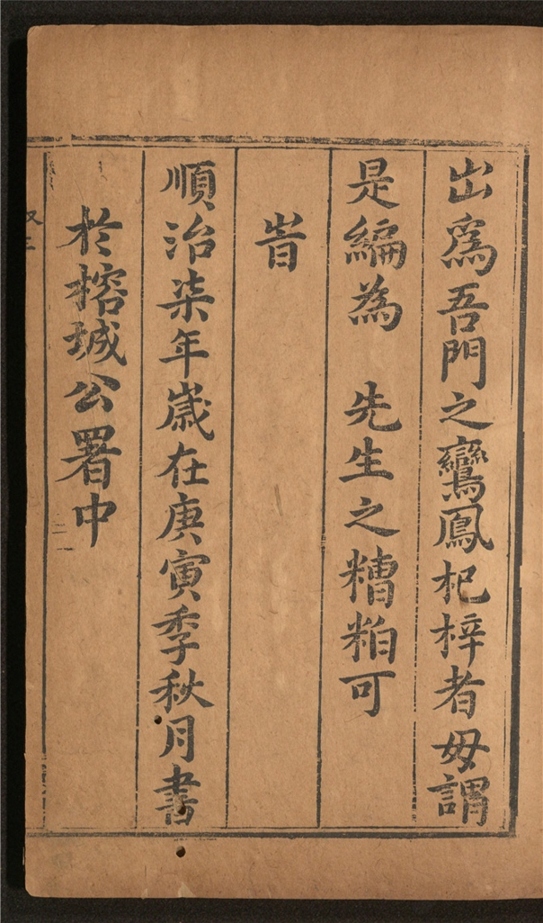 出爲吾門之鸞鳳杞梓者毋謂
是編為　先生之糟粕可
旹
順治柒年歲在庚寅季秋月書
於榕城公署中